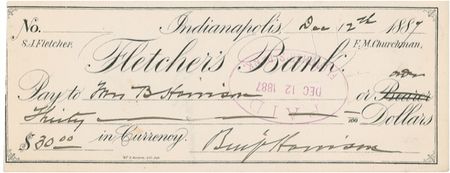 No. Indianapolis, Dec 12th 1887
S.J. Fletcher, F.M. Churchman,
Fletcher's Bank.
DEC 12 1887
PAID
order
Pay to Mrs B Harrison or Bearer
Thirty 100 Dollars
$30.00 in Currency. Benj Harrison